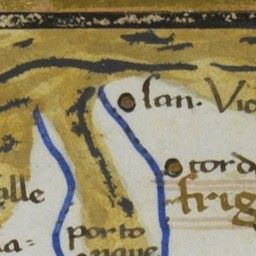 san. Vic
tord
frig
alle
porto
na=